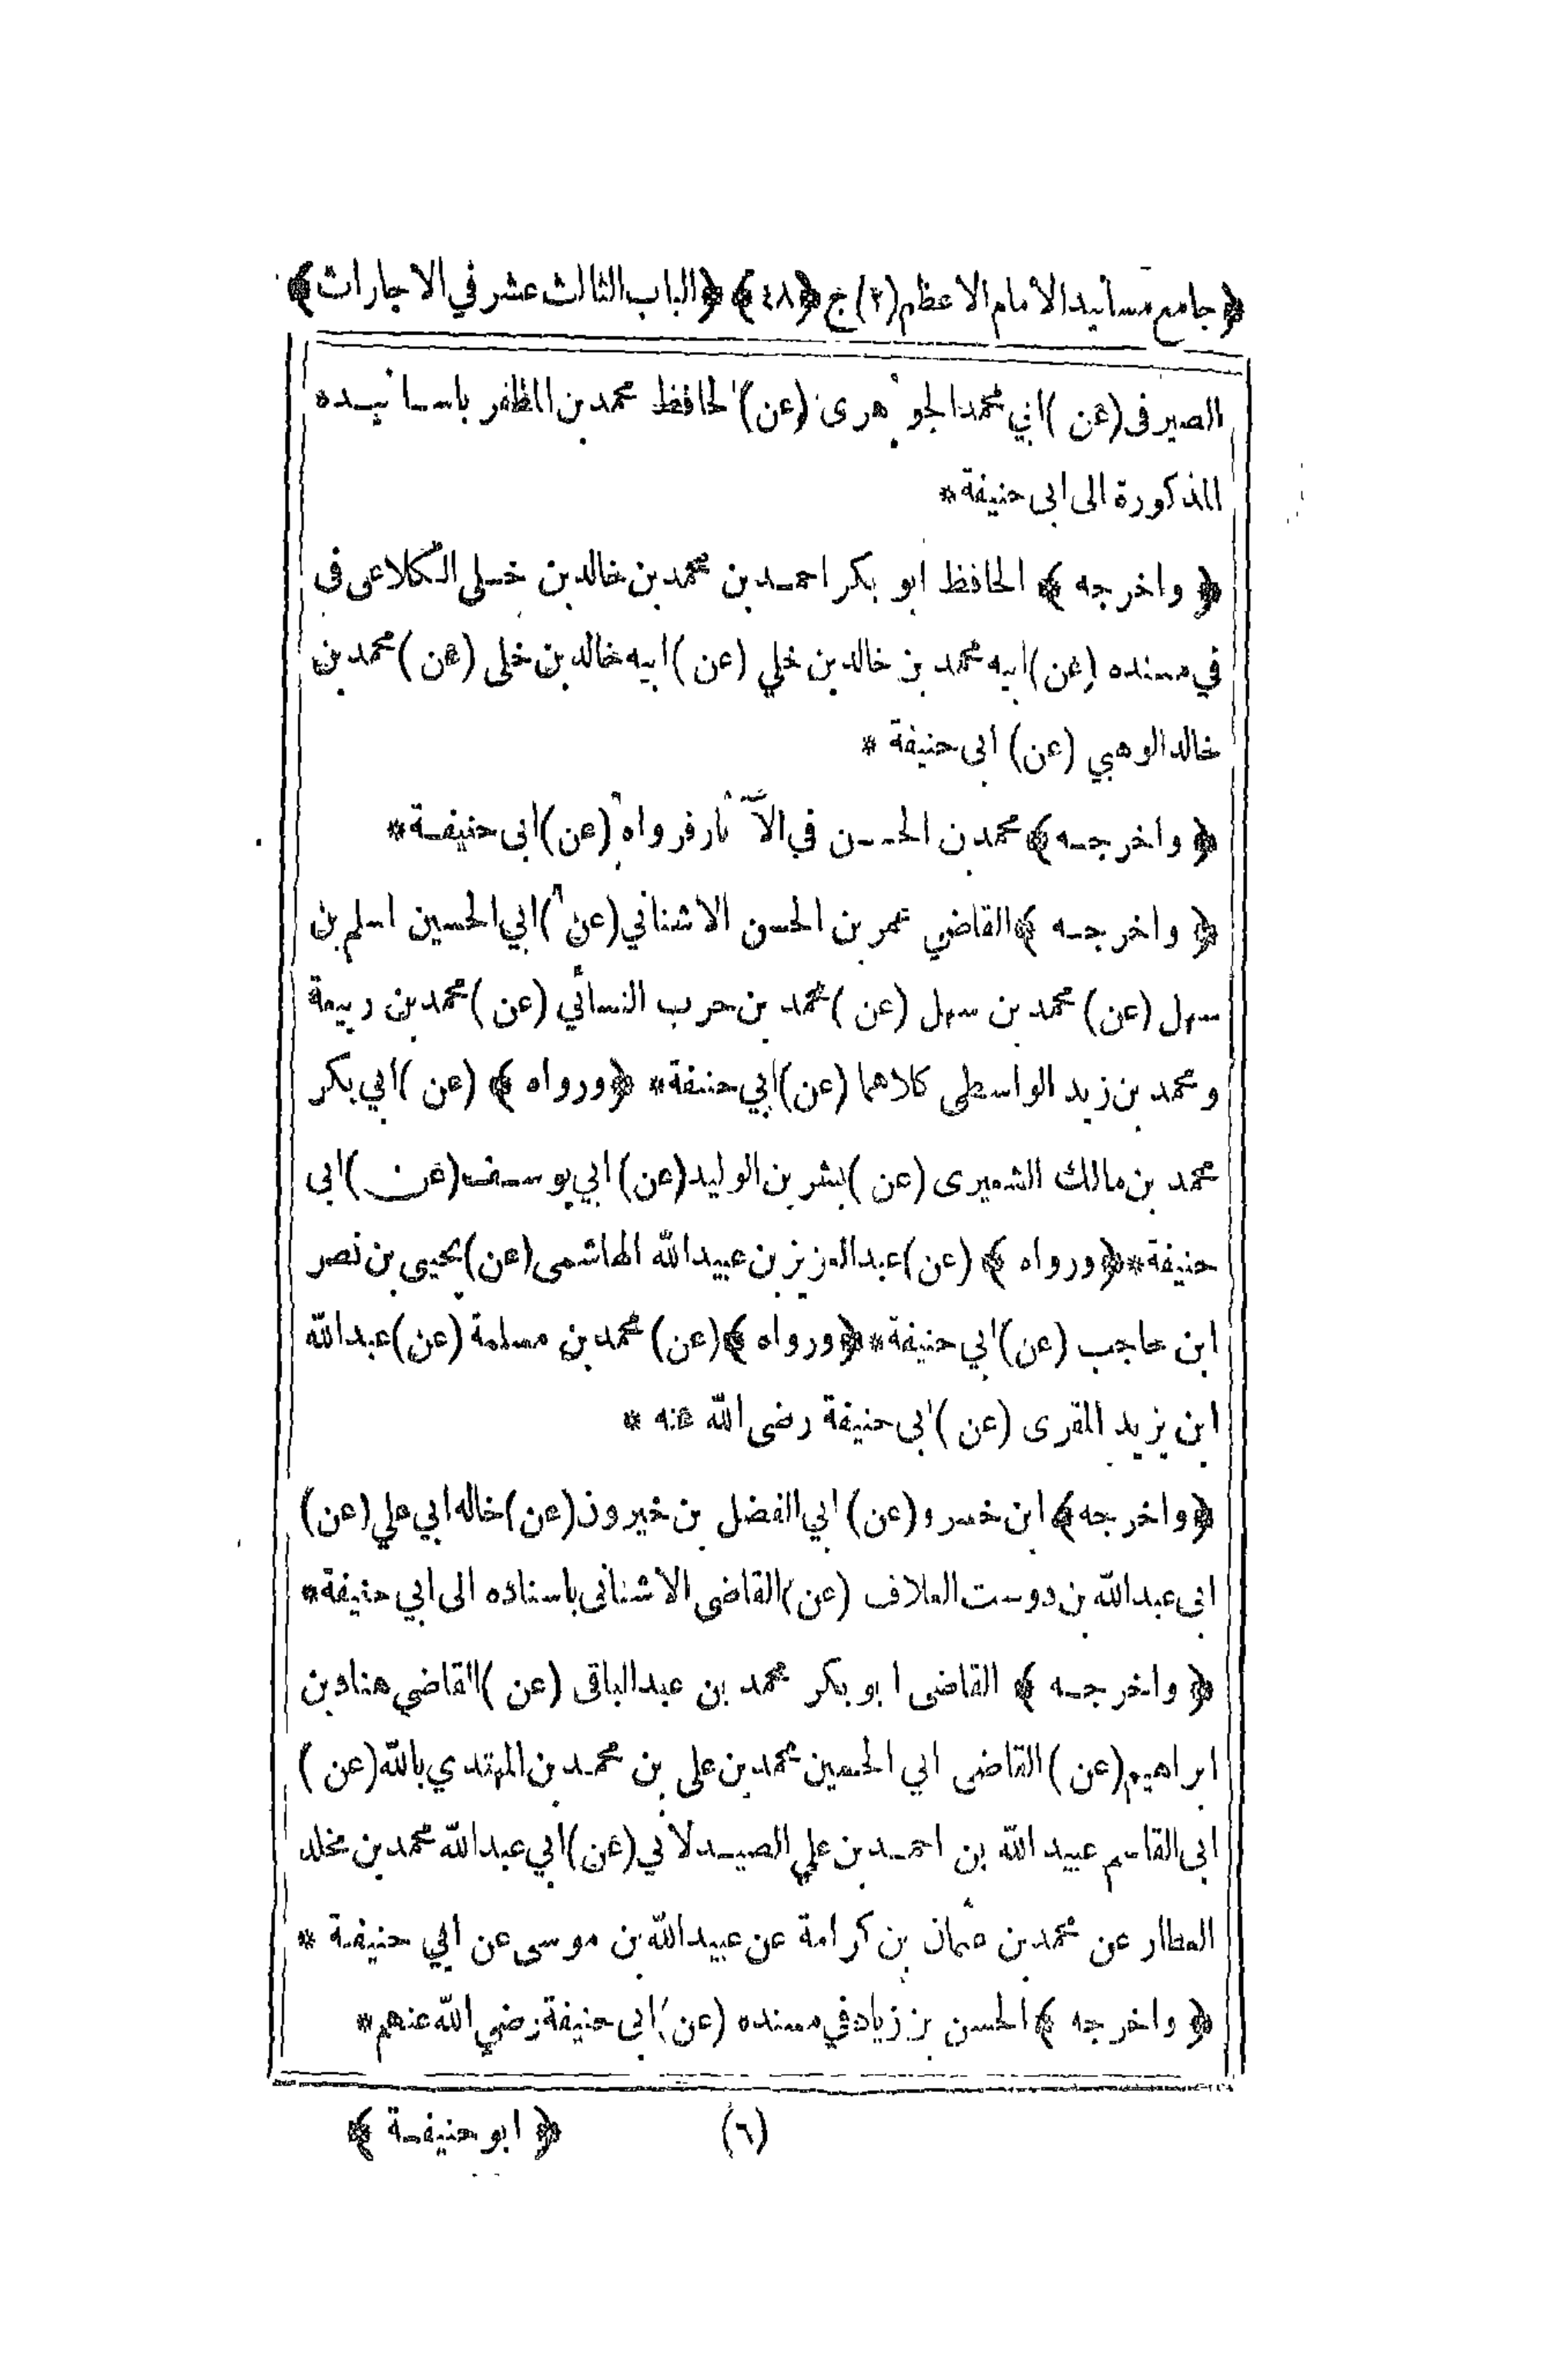 ﴿ جامع مسانيد الامام الاعظم (٢) ج ﴾ ﴿ ٤٨ ﴾ ﴿ الباب الثالث عشر في الاجارات ﴾
الصيرفى (عن) ابي محمد الجوهرى (عن) الحافظ محمد بن المظفر باسانيده
المذكورة الى ابى حنيفة *
﴿ واخرجه ﴾ الحافظ ابو بكر احمد بن محمد بن خالد بن خلى الكلاعى فى
في مسنده (عن) ابيه محمد بن خالد بن خلي (عن) ابيه خالد بن خلى (عن) محمد بن
خالد الوهبي (عن) ابى حنيفة *
﴿ واخرجه ﴾ محمد بن الحسن في الآثار فرواه (عن) ابى حنيفة *
﴿ واخرجه ﴾ القاضي عمر بن الحسن الاشناني (عن) ابي الحسين اسلم بن
سهل (عن) محمد بن سهل (عن) محمد بن حرب النسائي (عن) محمد بن ربيعة
ومحمد بن زيد الواسطى كلاهما (عن) ابي حنيفة * ﴿ ورواه ﴾ (عن) ابي بكر
محمد بن مالك الشعيرى (عن) بشر بن الوليد (عن) ابي يوسف (عن) ابى
حنيفة * ﴿ ورواه ﴾ (عن) عبد العزيز بن عبيد الله الهاشمى (عن) يحيى بن نصر
ابن حاجب (عن) ابي حنيفة * ﴿ ورواه ﴾ (عن) محمد بن مسلمة (عن) عبد الله
ابن يزيد المقرى (عن) ابى حنيفة رضى الله عنه *
﴿ واخرجه ﴾ ابن خسرو (عن) ابي الفضل بن خيرون (عن) خاله ابي علي (عن)
ابى عبد الله بن دوست العلاف (عن) القاضى الاشنانى باسناده الى ابي حنيفة *
﴿ واخرجه ﴾ القاضى ابو بكر محمد بن عبد الباقى (عن) القاضي هناد بن
ابراهيم (عن) القاضى ابي الحسين محمد بن على بن محمد بن المهتدي بالله (عن)
ابى القاسم عبيد الله بن احمد بن علي الصيدلاني (عن) ابي عبد الله محمد بن مخلد
العطار عن محمد بن عثمان بن كرامة عن عبيد الله بن موسى عن ابي حنيفة *
﴿ واخرجه ﴾ الحسن بن زياد في مسنده (عن) ابى حنيفة رضي الله عنهم *
(٦) ﴿ ابو حنيفة ﴾